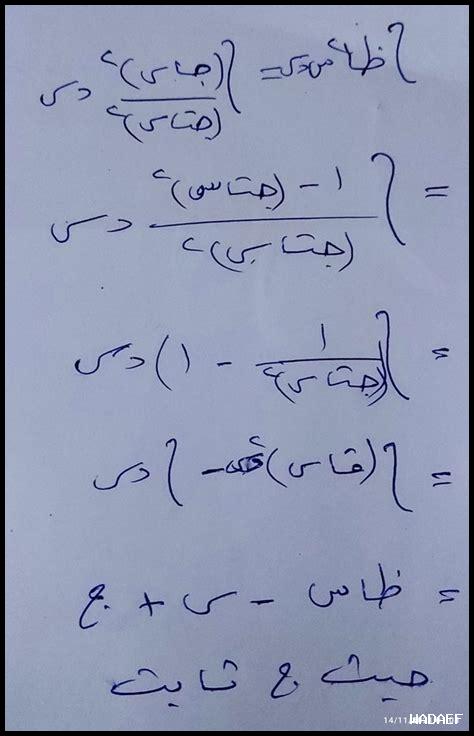 ∫ ظا² س دس = ∫ (جاس)² / (جتاس)² دس
= ∫ ١ − (جتاس)² / (جتاس)² دس
= ∫ (١ / (جتاس)² − ١) دس
= ∫ (قاس)² دس − ∫ دس
= ظاس − س + ج
حيث ج ثابت
14/11
WADAEF